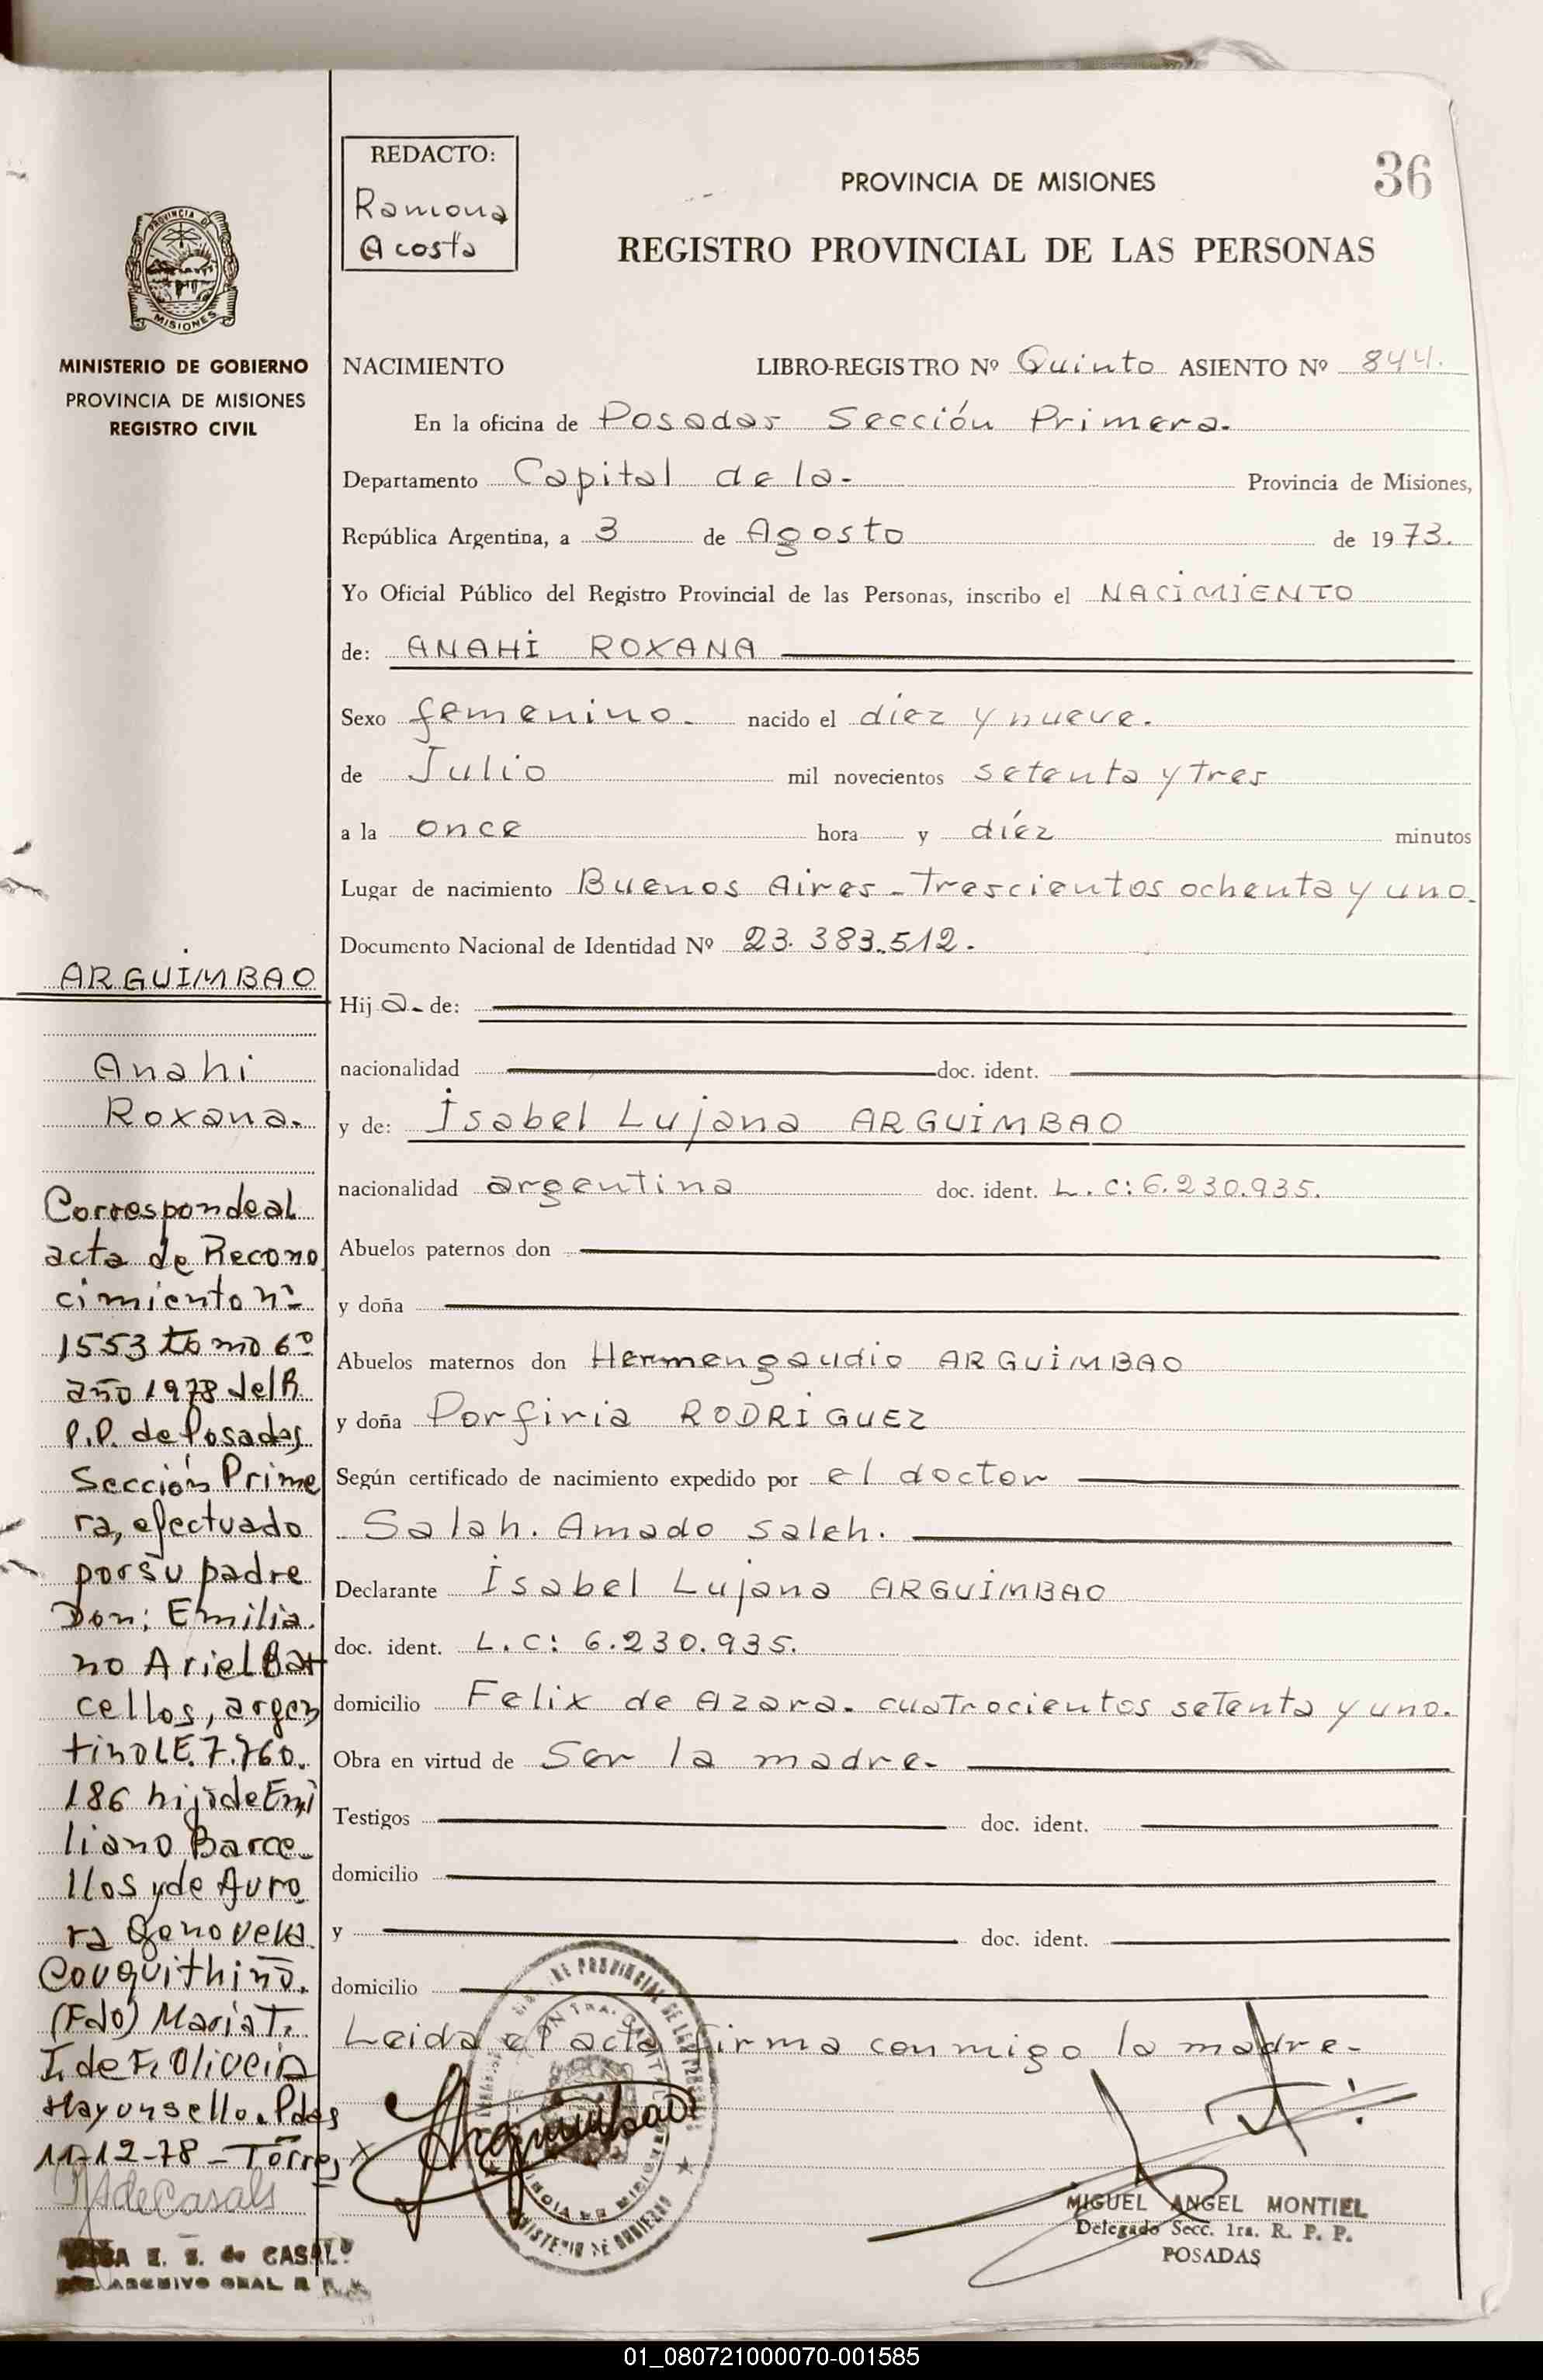 REDACTO:
Ramona
Acosta
36
PROVINCIA DE MISIONES
REGISTRO PROVINCIAL DE LAS PERSONAS
PROVINCIA DE
MISIONES
MINISTERIO DE GOBIERNO
PROVINCIA DE MISIONES
REGISTRO CIVIL
NACIMIENTO LIBRO-REGISTRO Nº Quinto ASIENTO Nº 844.
En la oficina de Posadas Sección Primera.
Departamento Capital de la- Provincia de Misiones,
República Argentina, a 3 de Agosto de 1973.
Yo Oficial Público del Registro Provincial de las Personas, inscribo el NACiMiENTO
de: ANAHi ROXANA
Sexo femenino. nacido el diez y nueve.
de Julio mil novecientos setenta y tres
a la once hora y díez minutos
Lugar de nacimiento Buenos Aires - Trescientos ochenta y uno.
Documento Nacional de Identidad Nº 23.383.512.
Hija- de:
nacionalidad doc. ident.
y de: isabel Lujana ARGUiMBAO
nacionalidad argentina doc. ident. L.C: 6.230.935.
Abuelos paternos don
y doña
Abuelos maternos don Hermengaudio ARGUiMBAO
y doña Porfiria RODRiGUEZ
Según certificado de nacimiento expedido por el doctor
Salah. Amado saleh.
Declarante isabel Lujana ARGUiMBAO
doc. ident. L.C: 6.230.935.
domicilio Felix de Azara. cuatrocientos setenta y uno.
Obra en virtud de Ser la madre-
Testigos doc. ident.
domicilio
y doc. ident.
domicilio
Leida el acta firma conmigo la madre-
Arguimbao
MIGUEL ANGEL MONTIEL
Delegado Secc. 1ra. R. P. P.
POSADAS
ARGUiMBAO
Anahi
Roxana.
Corresponde al
acta de Recono
cimiento nº
1553 tomo 6º
año 1978 del R.
P.P. de Posadas
Sección Prime
ra, efectuado
por su padre
Don: Emilia
no Ariel Bar
cellos, argen
tino LE. 7.760.
186 hijo de Emi
liano Barce
llos y de Auro
ra Genoveva
(Fdo) Maria T.
I. de F. Oliveira
Hay un sello. Pdas
11-12-78 - Torres
de Casals
E. S. de CASALS
ARCHIVO GRAL R
01_080721000070-001585